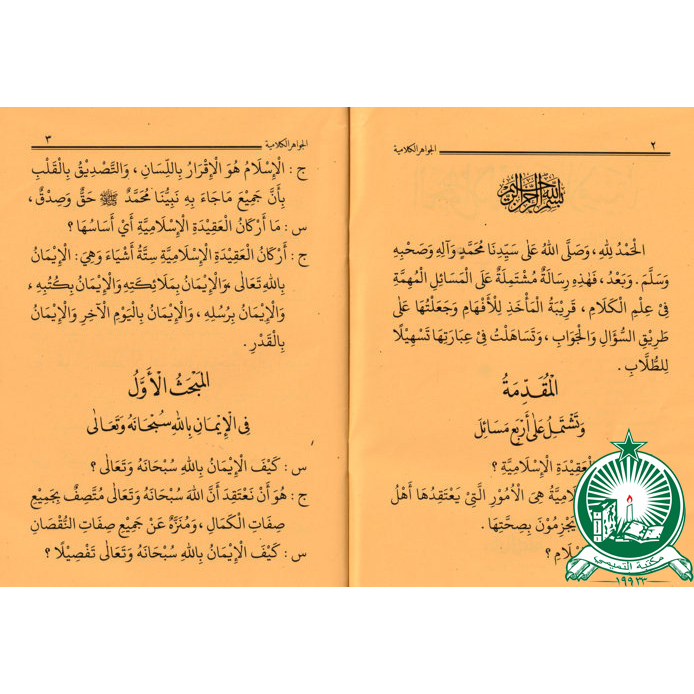 ٢
الجواهر الكلامية
بسم الله الرحمن الرحيم
الْحَمْدُ لِلّٰهِ ، وَصَلَّى اللهُ عَلَى سَيِّدِنَا مُحَمَّدٍ وَآلِهِ وَصَحْبِهِ
وَسَلَّمَ . وَبَعْدُ ، فَهٰذِهِ رِسَالَةٌ مُشْتَمِلَةٌ عَلَى الْمَسَائِلِ الْمُهِمَّةِ
فِى عِلْمِ الْكَلَامِ ، قَرِيْبَةُ الْمَأْخَذِ لِلْأَفْهَامِ وَجَعَلْتُهَا عَلَى
طَرِيْقِ السُّؤَالِ وَالْجَوَابِ ، وَتَسَاهَلْتُ فِىْ عِبَارَتِهَا تَسْهِيْلًا
لِلطُّلَّابِ .
الْمُقَدِّمَةُ
وَتَشْتَمِلُ عَلَى أَرْبَعِ مَسَائِلَ
الْعَقِيْدَةِ الْإِسْلَامِيَّةِ ؟
هِىَ الْأُمُوْرُ الَّتِىْ يَعْتَقِدُهَا أَهْلُ
يَجْزِمُوْنَ بِصِحَّتِهَا .
؟
مكتبة التميمي
١٩٩٣٣
٣
الجواهر الكلامية
ج : الْإِسْلَامُ هُوَ الْإِقْرَارُ بِاللِّسَانِ ، وَالتَّصْدِيْقُ بِالْقَلْبِ
بِأَنَّ جَمِيْعَ مَاجَاءَ بِهِ نَبِيُّنَا مُحَمَّدٌ ﷺ حَقٌّ وَصِدْقٌ ،
س : مَا أَرْكَانُ الْعَقِيْدَةِ الْإِسْلَامِيَّةِ أَيْ أَسَاسُهَا ؟
ج : أَرْكَانُ الْعَقِيْدَةِ الْإِسْلَامِيَّةِ سِتَّةُ أَشْيَاءَ وَهِيَ : الْإِيْمَانُ
بِاللهِ تَعَالَى ، وَالْإِيْمَانُ بِمَلَائِكَتِهِ وَالْإِيْمَانُ بِكُتُبِهِ ،
وَالْإِيْمَانُ بِرُسُلِهِ ، وَالْإِيْمَانُ بِالْيَوْمِ الْآخِرِ وَالْإِيْمَانُ
بِالْقَدْرِ .
الْمَبْحَثُ الْأَوَّلُ
فِى الْإِيْمَانِ بِاللهِ سُبْحَانَهُ وَتَعَالَى
س : كَيْفَ الْإِيْمَانُ بِاللهِ سُبْحَانَهُ وَتَعَالَى ؟
ج : هُوَ أَنْ نَعْتَقِدَ أَنَّ اللهَ سُبْحَانَهُ وَتَعَالَى مُتَّصِفٌ بِجَمِيْعِ
صِفَاتِ الْكَمَالِ ، وَمُنَزَّهٌ عَنْ جَمِيْعِ صِفَاتِ النُّقْصَانِ
س : كَيْفَ الْإِيْمَانُ بِاللهِ سُبْحَانَهُ وَتَعَالَى تَفْصِيْلًا ؟